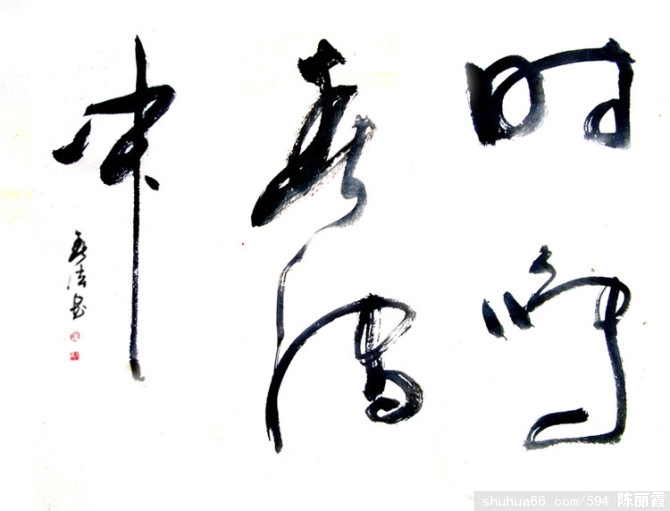 时鸣
春涧
中
shuhua66.com/594 陈丽霞